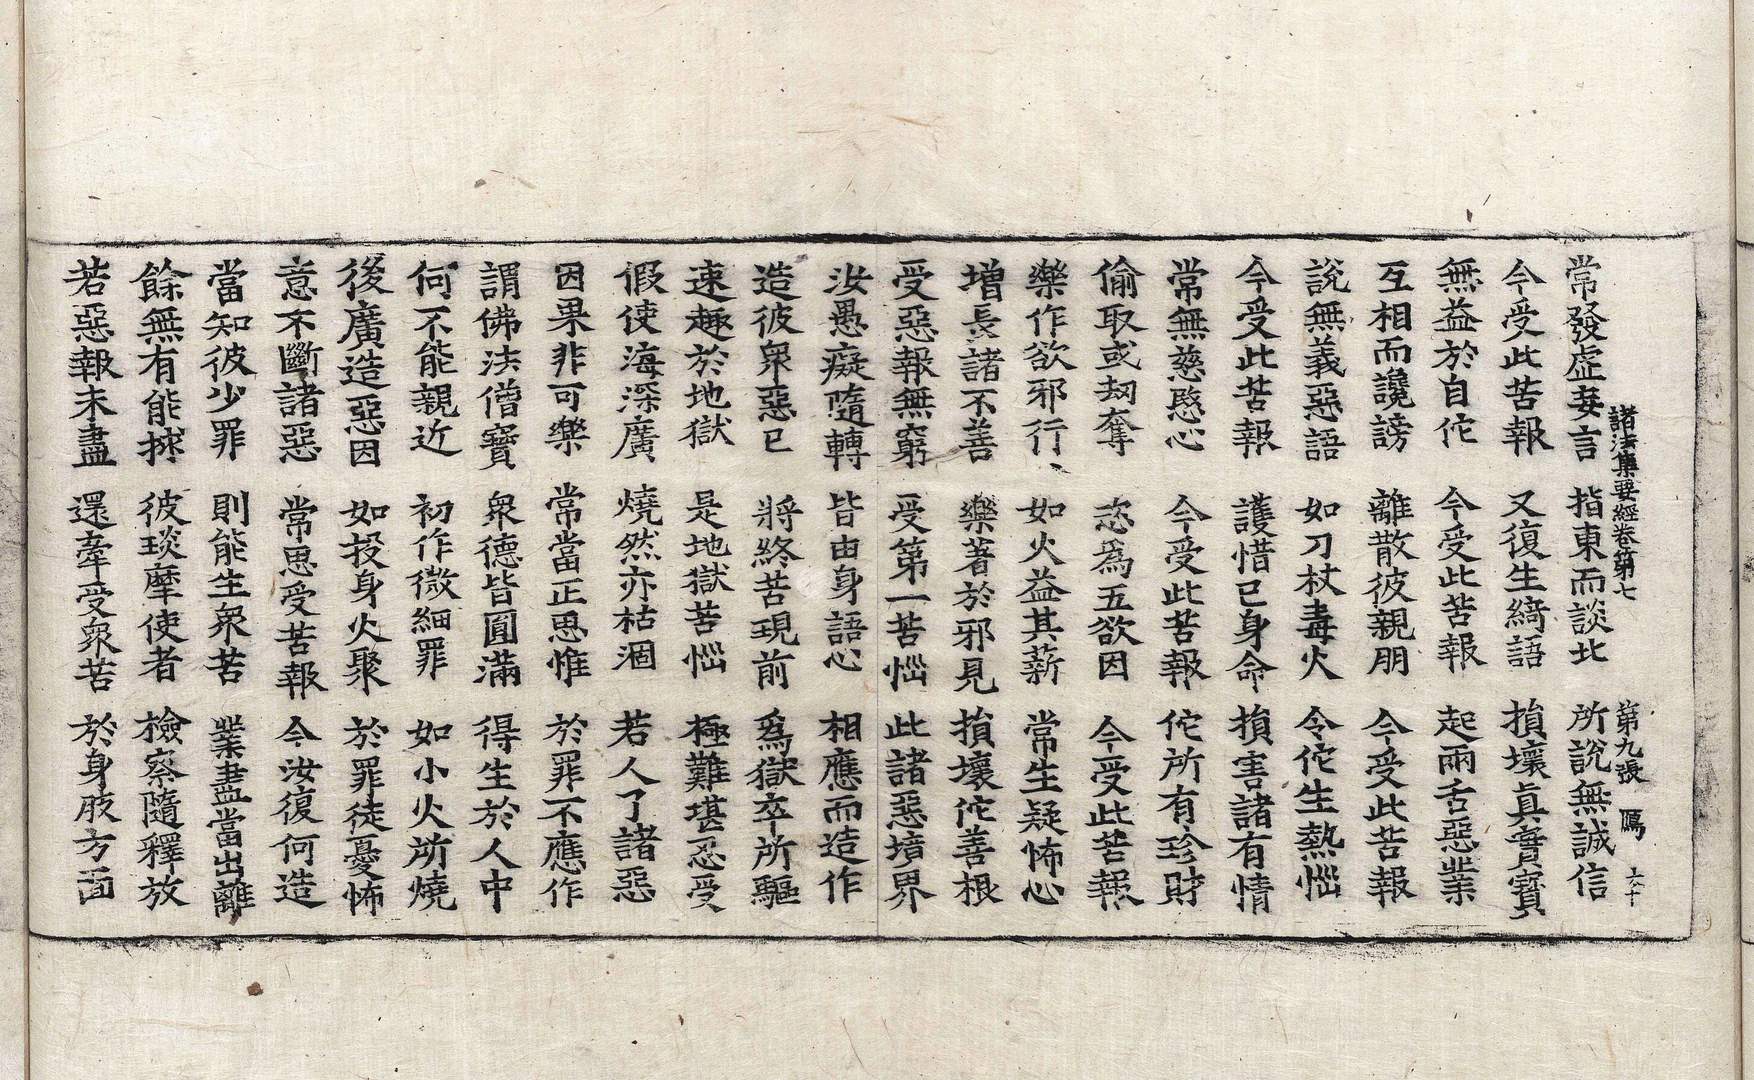 諸法集要經卷第七 第九張 馮
常發虛妄言 指東而談北 所說無誠信
今受此苦報 又復生綺語 損壞眞實寶
無益於自佗 今受此苦報 起兩舌惡業
互相而讒謗 離散彼親朋 今受此苦報
說無義惡語 如刀杖毒火 令佗生熱惱
今受此苦報 護惜已身命 損害諸有情
常無慈愍心 今受此苦報 佗所有珍財
偷取或刼奪 恣爲五欲因 今受此苦報
樂作欲邪行 如火益其薪 常生疑怖心
增長諸不善 樂著於邪見 損壞佗善根
受惡報無窮 受第一苦惱 此諸惡境界
汝愚癡隨轉 皆由身語心 相應而造作
造彼衆惡已 將終苦現前 爲獄卒所驅
速趣於地獄 是地獄苦惱 極難堪忍受
假使海深廣 燒然亦枯涸 若人了諸惡
因果非可樂 常當正思惟 於罪不應作
謂佛法僧寶 衆德皆圓滿 得生於人中
何不能親近 初作微細罪 如小火所燒
後廣造惡因 如投身火聚 於罪徒憂怖
意不斷諸惡 常思受苦報 今汝復何造
當知彼少罪 則能生衆苦 業盡當出離
餘無有能救 彼琰摩使者 檢察隨釋放
若惡報未盡 還牽受衆苦 於身肢方面